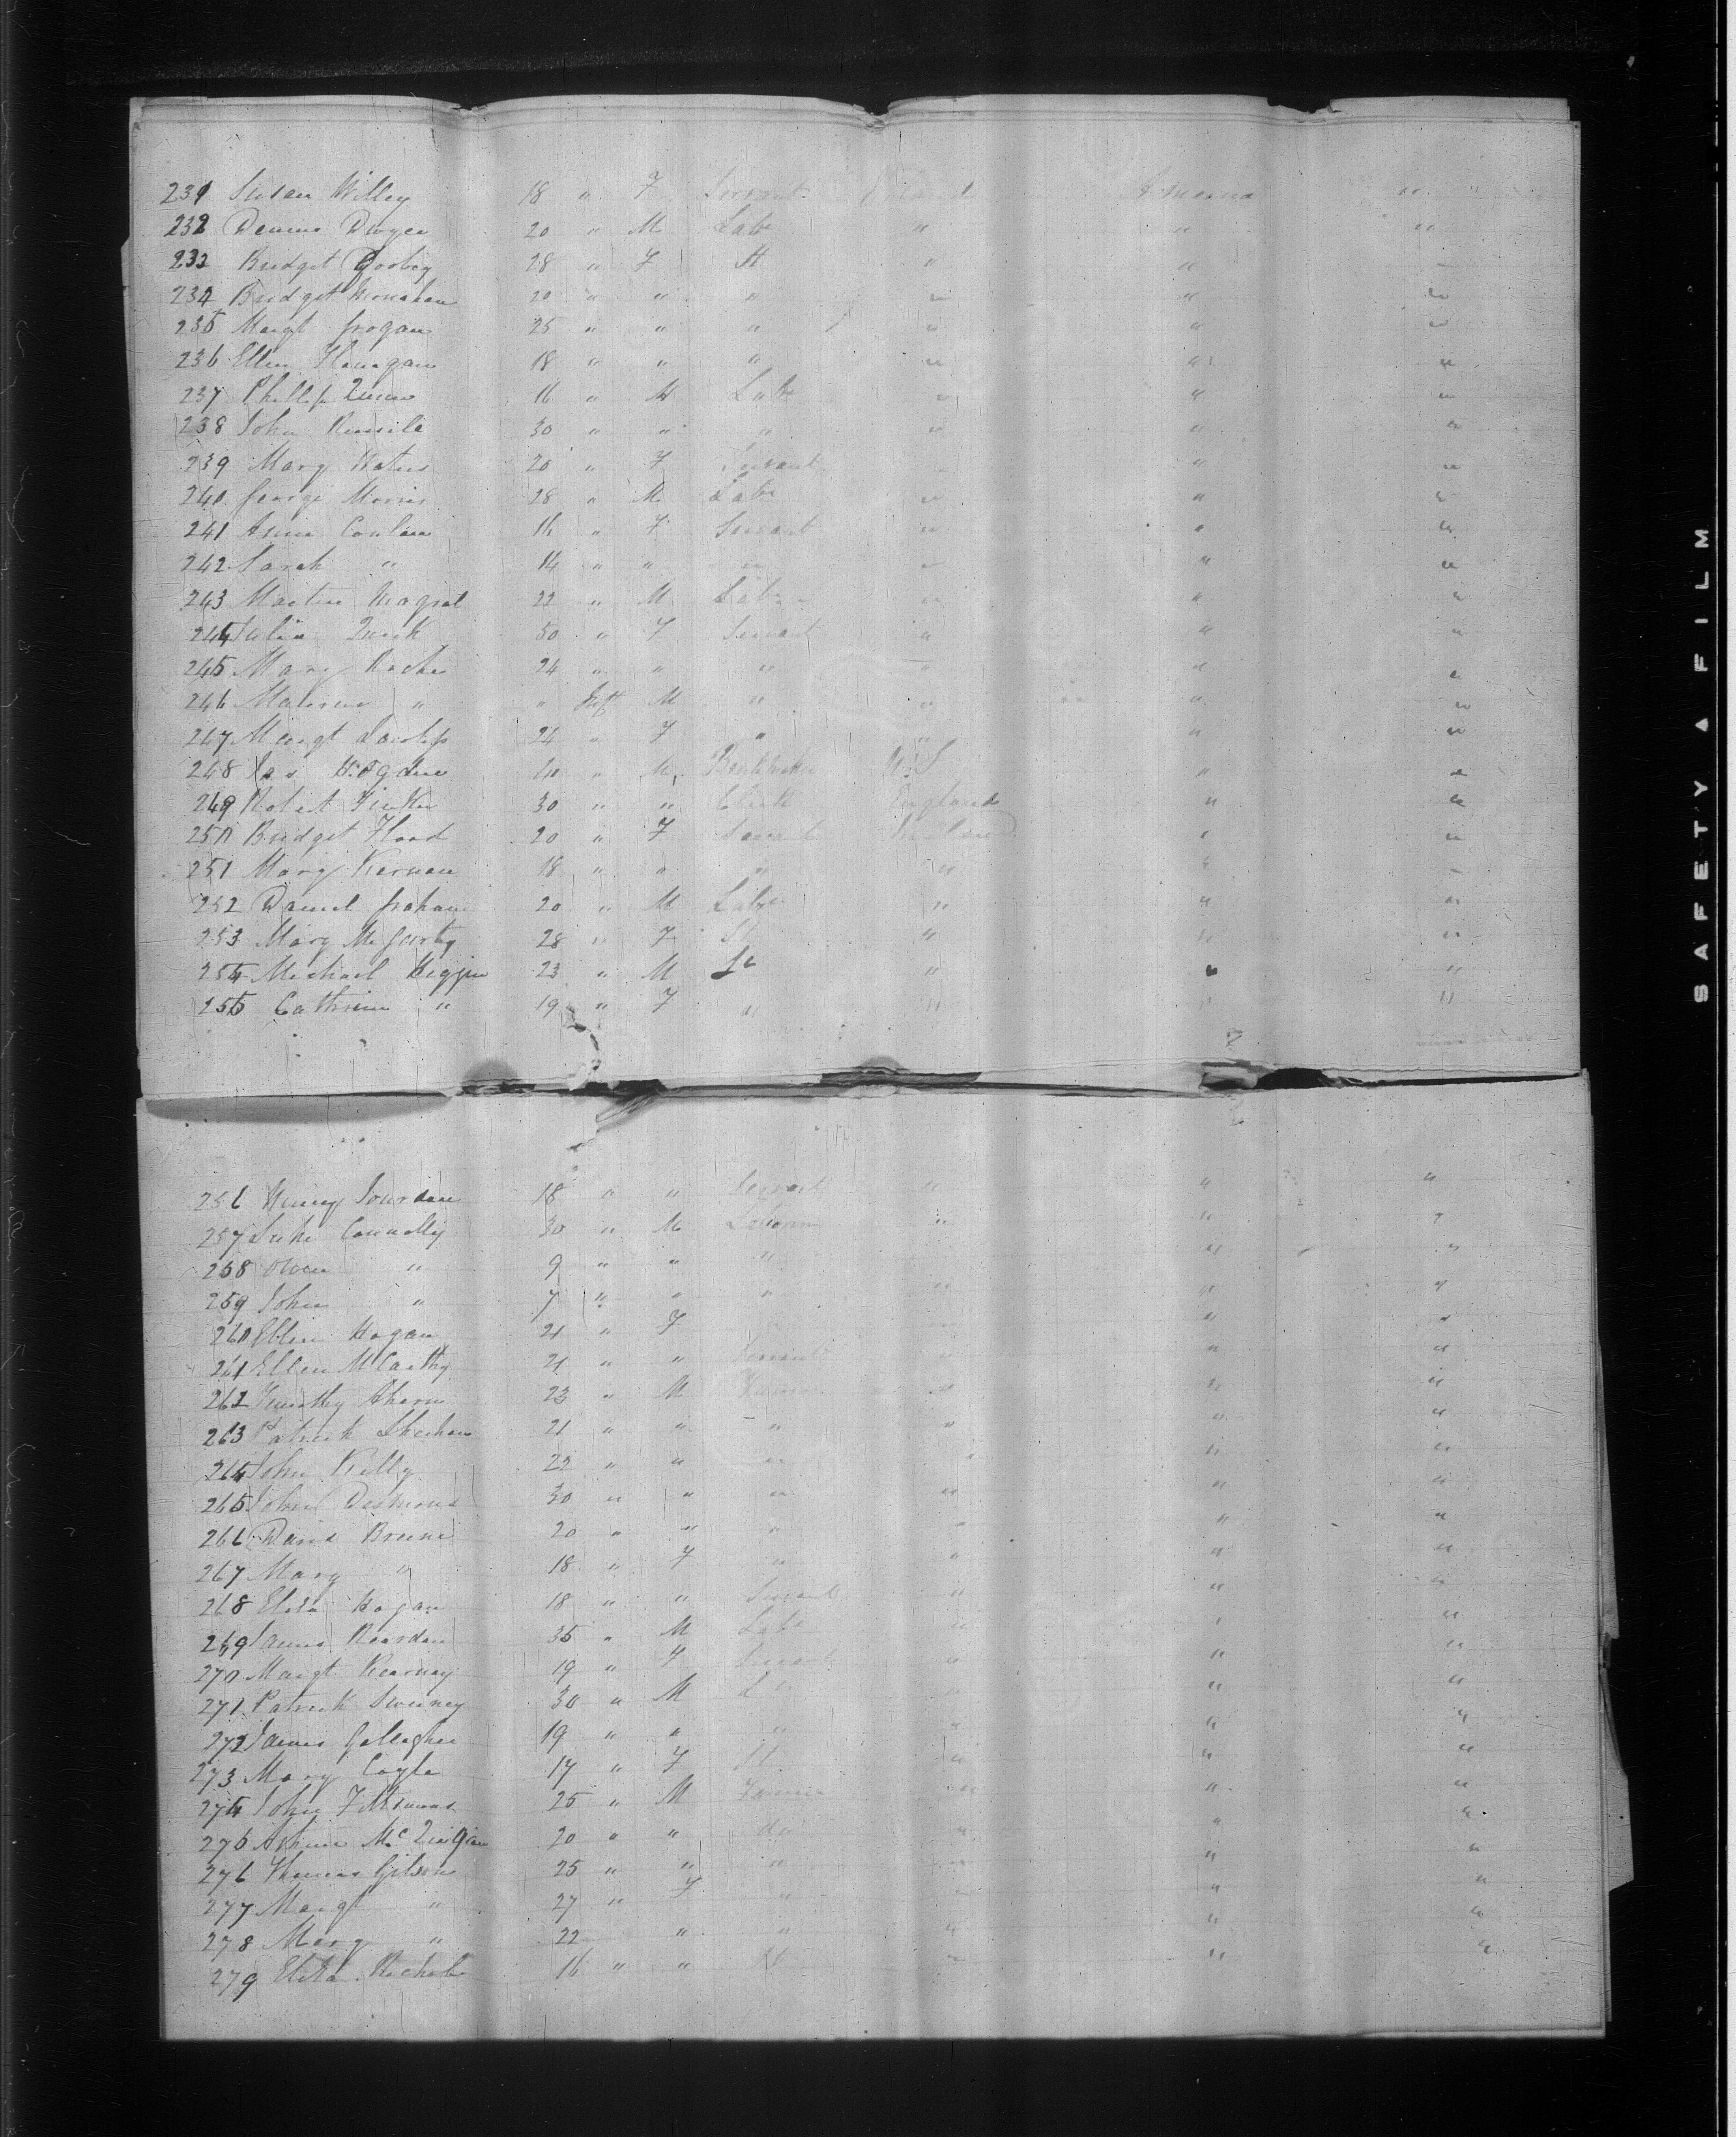 231 Susan Willey 18 " F Servant Ireland America "
232 Dennis Dwyer 20 " M Labr " " "
233 Bridget 28 " F St " " "
234 Bridget Monahan 20 " " " " " "
235 Margt Grogan 25 " " " " " "
236 Ellen Flanagan 18 " " " " " "
237 Phillip Quinn 16 " M Labr " " "
238 John 30 " " " " " "
239 Mary Waters 20 " F Servant " " "
240 George Morris 28 " M Labr " " "
241 Anne Conlan 16 " F Servant " " "
242 Sarah " 14 " " " " " "
243 Martin 22 " M Labr " " "
244 Julia Quirk 50 " F Servant " " "
245 Mary Roche 24 " " " " " "
246 " " Inft M " " " "
247 Margt 24 " F " " " "
248 Jas Hogden 40 " M U.S " "
249 Robert 30 " " Clerk England " "
250 Bridget Flood 20 " F Servant Ireland " "
251 Mary Kernan 18 " " " " " "
252 Daniel Graham 20 " M Labr " " "
253 Mary McGarty 28 " F St " " "
254 Michael Higgins 23 " M Lr " " "
255 Cathrine " 19 " F " " " "
256 Jourdan 18 " " Servant " " "
257 Luke Connolly 30 " M Laborer " " "
258 Owen " 9 " " " " "
259 John " 7 " " " " " "
260 Ellen Hogan 21 " F " " " "
261 Ellen McCarthy 21 " " Servant " " "
262 Timothy Ahern 23 " M Farmer " " "
263 Patrick Sheehan 21 " " " " " "
264 John Kelly 22 " " " " " "
265 John Desmond 30 " " " " " "
266 David Breene 20 " " " " " "
267 Mary " 18 " F " " " "
268 Eliza Hogan 18 " " Servant " " "
269 James Reardan 35 " M Labr " " "
270 Margt Kearney 19 " F Servant " " "
271 Patrick Sweeney 30 " M Lr " " "
272 James Gallagher 19 " " " " " "
273 Mary Coyle 17 " F St " " "
274 John Fitzsimons 25 " M Farmer " " "
275 20 " " do " " "
276 Thomas Gibson 25 " " " " " "
277 Margt " 27 " F " " " "
278 Mary " 22 " " " " "
279 Eliza 16 " " St " " "
SAFETY A FILM